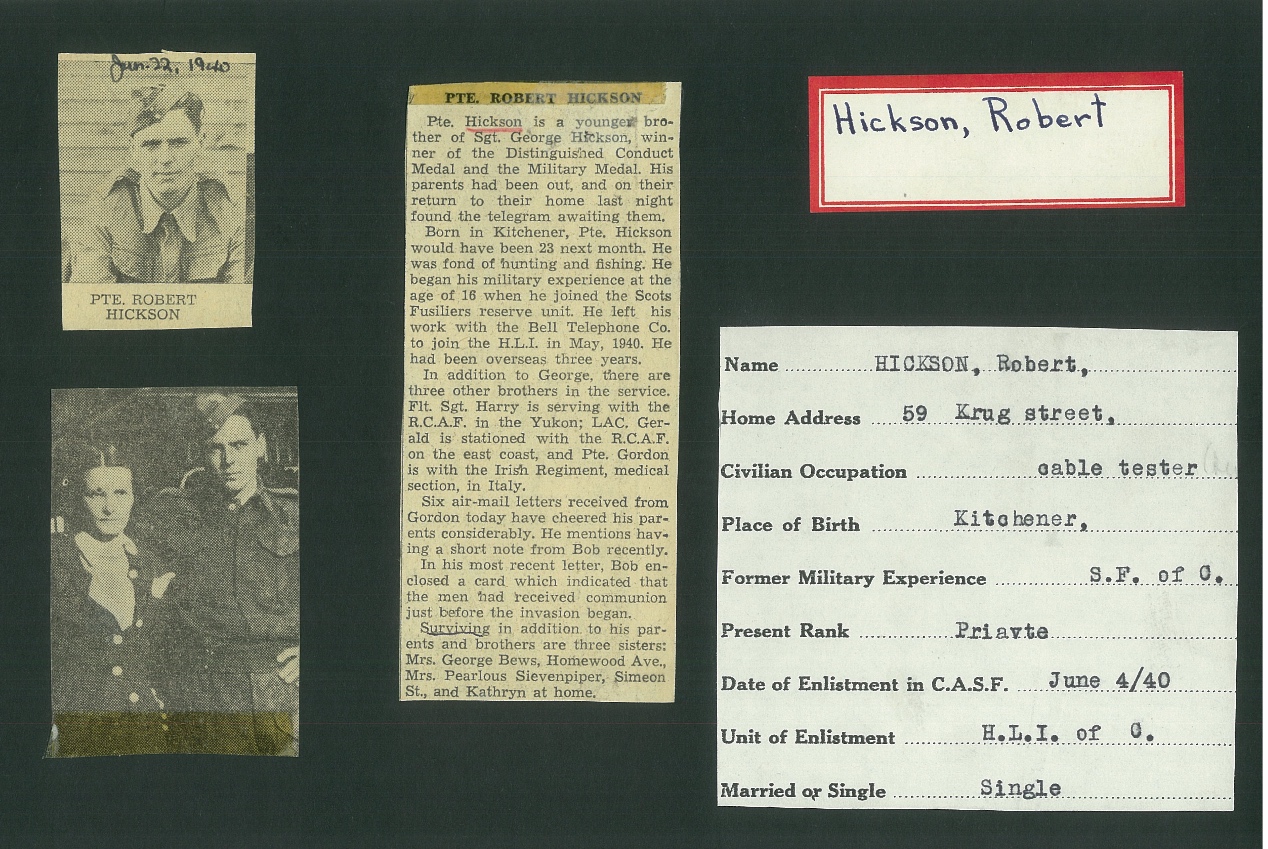 Jun. 22, 1940
PTE. ROBERT
HICKSON
PTE. ROBERT HICKSON
Pte. Hickson is a younger bro-
ther of Sgt. George Hickson, win-
ner of the Distinguished Conduct
Medal and the Military Medal. His
parents had been out, and on their
return to their home last night
found the telegram awaiting them.
Born in Kitchener, Pte. Hickson
would have been 23 next month. He
was fond of hunting and fishing. He
began his military experience at the
age of 16 when he joined the Scots
Fusiliers reserve unit. He left his
work with the Bell Telephone Co.
to join the H.L.I. in May, 1940. He
had been overseas three years.
In addition to George, there are
three other brothers in the service.
Flt. Sgt. Harry is serving with the
R.C.A.F. in the Yukon; LAC. Ger-
ald is stationed with the R.C.A.F.
on the east coast, and Pte. Gordon
is with the Irish Regiment, medical
section, in Italy.
Six air-mail letters received from
Gordon today have cheered his par-
ents considerably. He mentions hav-
ing a short note from Bob recently.
In his most recent letter, Bob en-
closed a card which indicated that
the men had received communion
just before the invasion began.
Surviving in addition to his par-
ents and brothers are three sisters:
Mrs. George Bews, Homewood Ave.,
Mrs. Pearlous Sievenpiper, Simeon
St., and Kathryn at home.
Hickson, Robert
Name HICKSON, Robert,
Home Address 59 Krug street,
Civilian Occupation cable tester
Place of Birth Kitchener,
Former Military Experience S.F. of C.
Present Rank Priavte
Date of Enlistment in C.A.S.F. June 4/40
Unit of Enlistment H.L.I. of C.
Married or Single Single